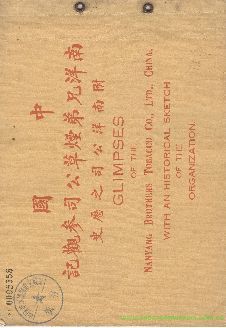 中國
南洋兄弟煙草公司參觀記
附南洋公司之歷史
GLIMPSES
OF THE
NANYANG BROTHERS TOBACCO CO., LTD., CHINA.
WITH AN HISTORICAL SKETCH
OF THE
ORGANIZATION.